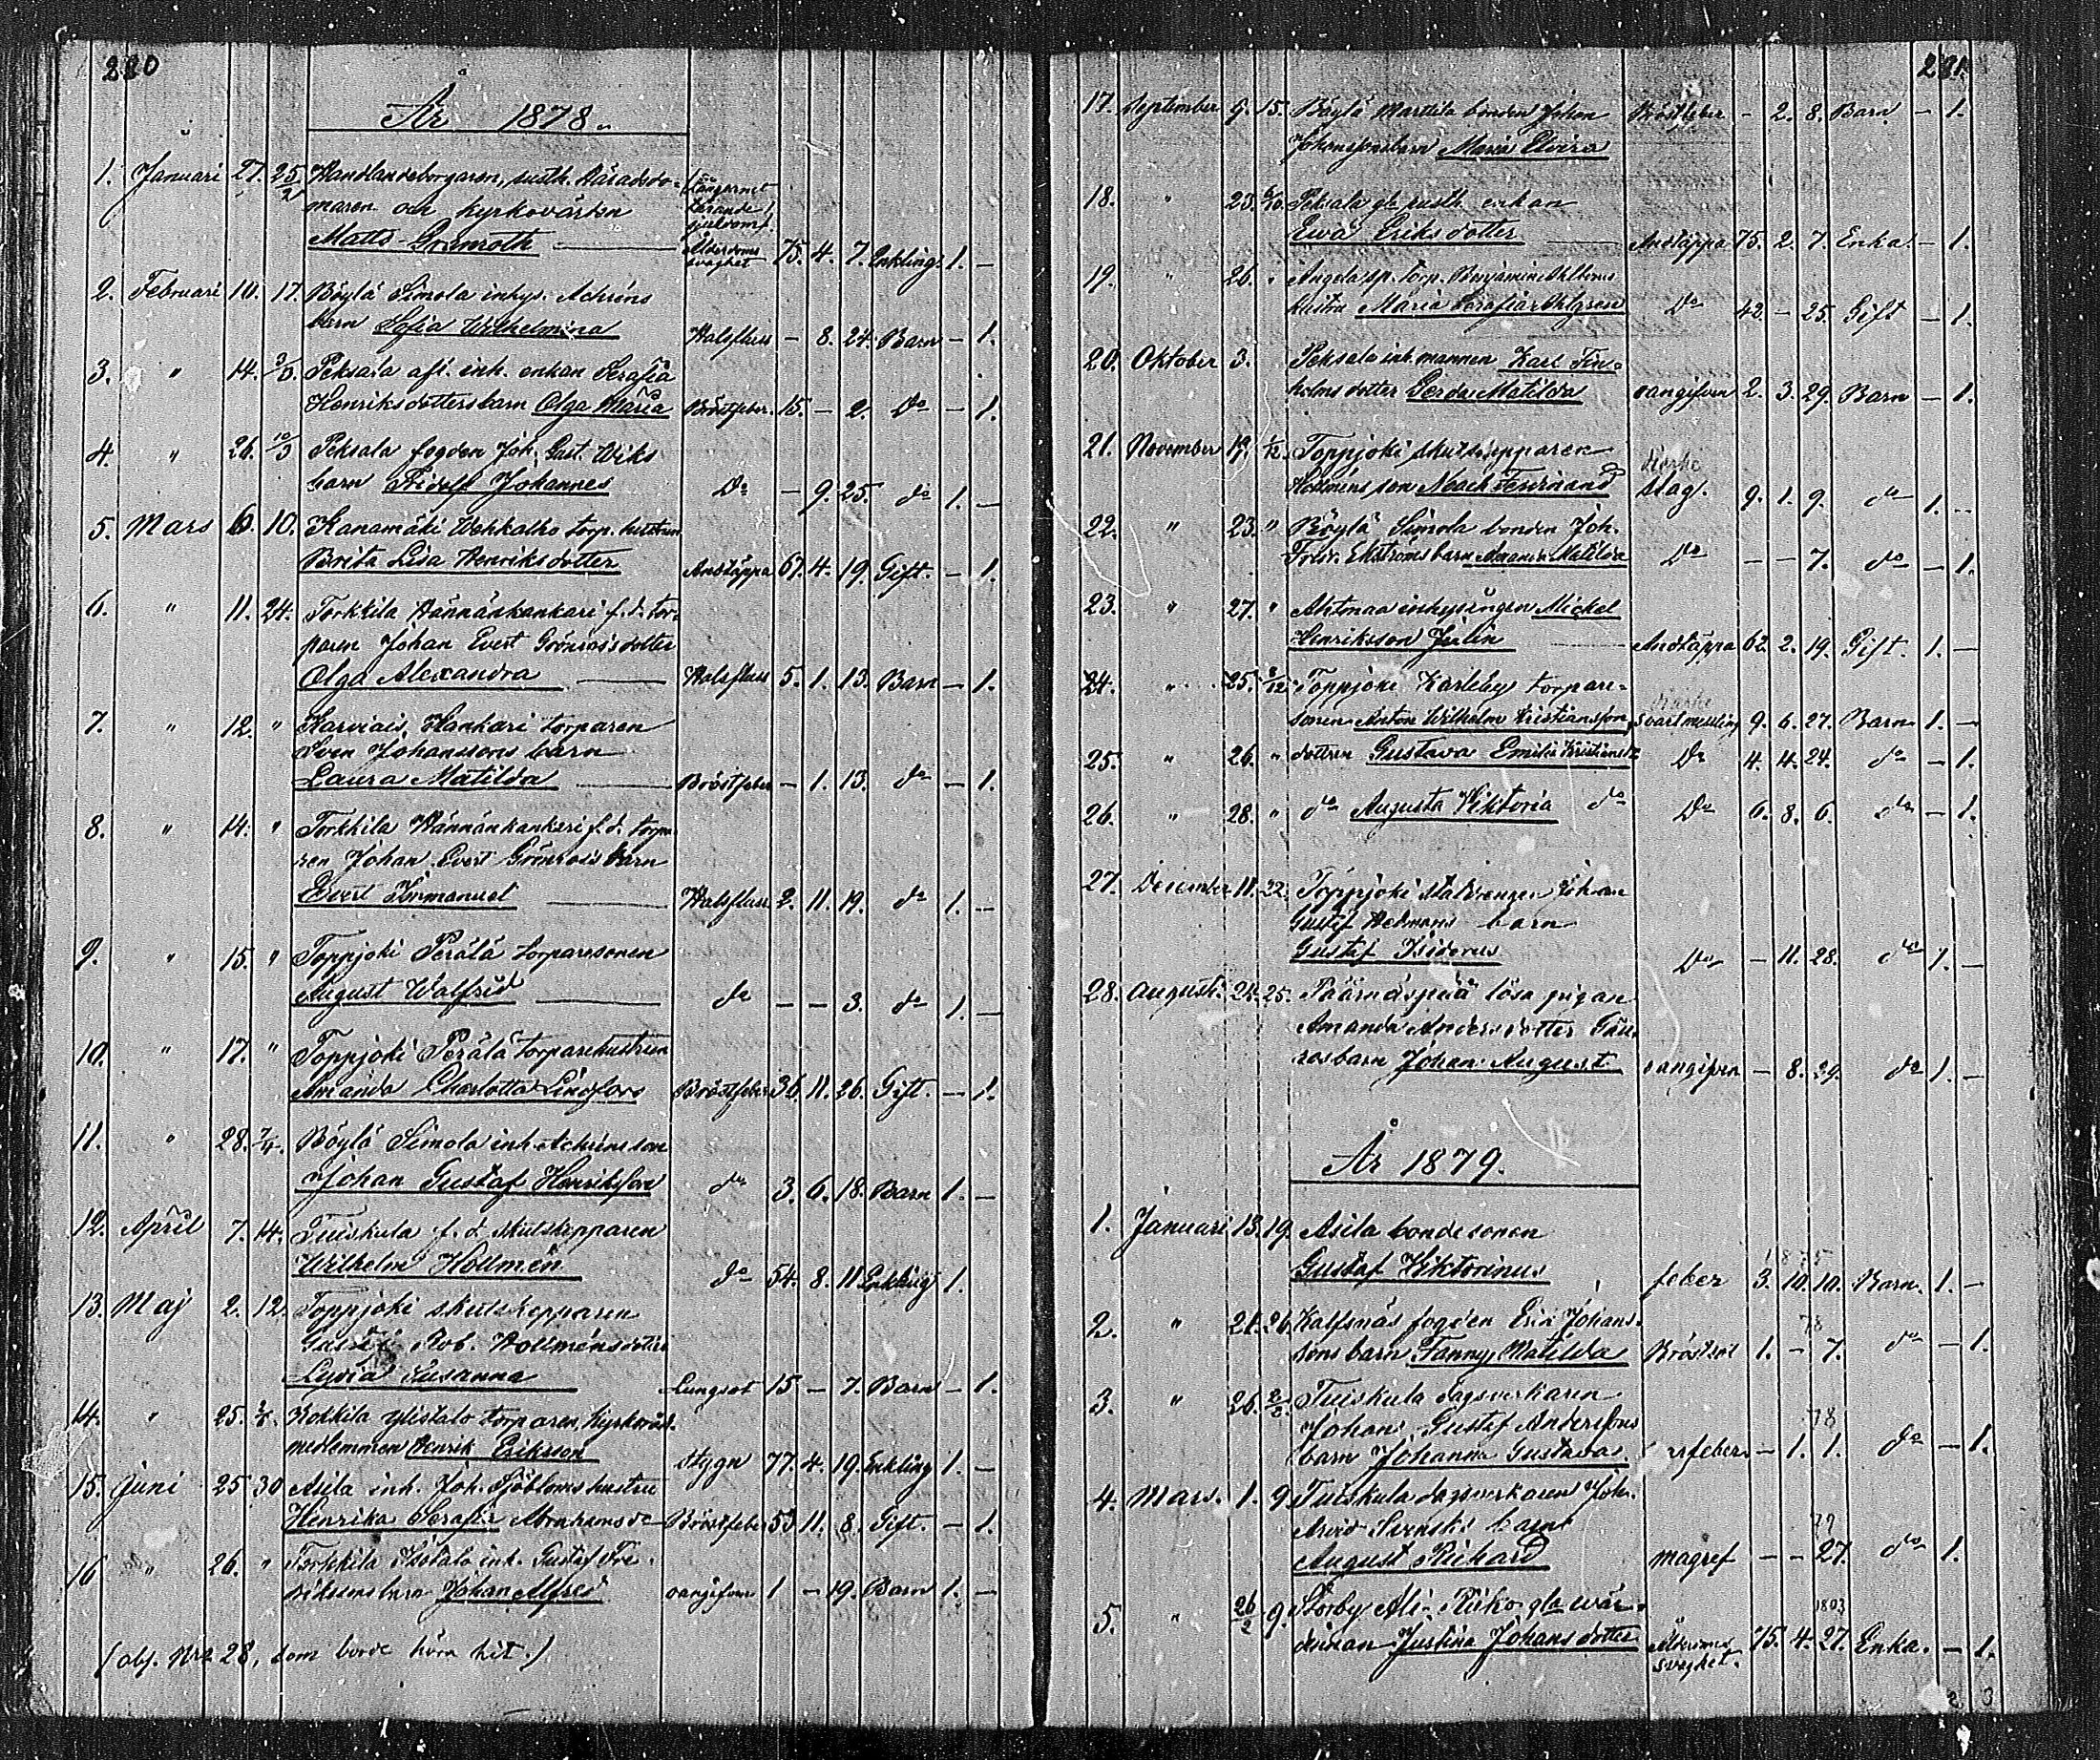 280
År 1878.
1. Januari 27. 25/2 Handlandeborgaren, rusth. Häradsdo-
maren och kyrkovärden
Matts Grönroth Ålderdoms svaghet 75. 4. 7. Enkling 1. —
2. Februari 10. 17. Böylä Simola inhys. Achréns
barn Sofia Wilhelmina Halsfluss — 8. 24. Barn — 1.
3. " 14. 3/3. Peksala afl. inh. enkan Serafia
Henriksdottersbarn Olga Maria Bröstfeber. 15. — 2. Do — 1.
4. " 26. 10/3 Peksala fogden Joh. Gust. Wiks
barn Fridolf Johannes Do — 9. 25. do 1. —
5. Mars 6. 10. Kanamäki Wehkalho torp. hustrun
Brita Lisa Henriksdotter Andtäppa 67. 4. 19. Gift. — 1.
6. " 11. 24. Torkkila Hännänkankari f. d. tor-
paren Johan Evert Grönroos's dotter
Olga Alexandra Halsfluss 5. 1. 13. Barn — 1.
7. " 12. " Karviais Hankari torparen
Sven Johanssons barn
Laura Matilda Bröstfeber — 1. 13. do — 1.
8. " 14. " Torkkila Hännänkankari f. d. torpa-
ren Johan Evert Grönroos's barn
Evert Immanuel Halsfluss 2. 11. 19. do 1. —
9. " 15. " Toppjoki Perälä torparesonen
August Walfrid do — — 3. do 1. —
10. " 17. " Toppjoki Perälä torparehustrun
Amanda Charlotta Lindfors Bröstfeber 36. 11. 26. Gift. — 1.
11. " 28. 7/4. Böylä Simola inh. Achréns son
Johan Gustaf Henriksson do 3. 6. 18. Barn 1. —
12. April 7. 14. Tuiskula f. d. skutskepparen
Wilhelm Hollmén do 54. 8. 11 Enkling 1.
13. Maj 2. 12. Toppjoki skutskepparen
Rob. Hollméns dotter
Lydia Susanna Lungsot 15 — 7. Barn — 1.
14. " 25. Kokkila ylistalo torparen, kyrkoråds-
medlemmen Henrik Eriksson stygn 77. 4. 19. Enkling 1. —
15. Juni 25 30 Asila inh. Joh. Sjöbloms hustru
Henrika Serafia Abrahamsdr Bröstfeber 53 11. 8. Gift. — 1.
16 " 26. " Torkkila Isotalo inh. Gustaf Fre-
drikssons barn Johan Alfred oangifven 1 — 19. Barn 1. —
(obs. Nro 28, som borde höra hit.)
281.
17. September 9. 15. Böylä Marttila bonden Johan
Johanssons barn Maria Elvira Bröstfeber — 2. 8. Barn — 1.
18. " 23. 6/10. Peksala gla rusth. enkan
Ewa Eriksdotter Andtäppa 75. 2. 7. Enka. — 1.
19. " 26. " Angela sp. torp. Benjamin Ahlgrens
hustru Maria Serafia Ahlgren Do 42. — 25. Gift — 1.
20. Oktober 3. Peksala inh. mannen Karl Fin-
holms dotter Gerda Matilda oangifven 2. 3. 29. Barn — 1.
21. November 19. 1/12 Toppjoki skutskepparen
Hollméns son Noach Ferdinand slag. 9. 1. 9. do 1. —
22. " 23. " Böylä Simola bonden Joh.
Fredr. Ekströms barn Amanda Matilda Do — — 7. do — 1.
23. " 27. " Ahtmaa inhysingen Mickel
Henriksson Julin Andtäppa 62. 2. 19. Gift. 1. —
24. " 25. 8/12. Toppjoki Karleby torpare-
sonen Anton Wilhelm Kristiansson, svartmessling 9. 6. 27. Barn 1. —
25. " 26. " dottren Gustava Emilia Kristiansdr Do 4. 4. 24. do — 1.
26. " 28. " do Augusta Viktoria do Do 6. 8. 6. do — 1.
27. December 11. 22. Toppjoki statdrengen Johan
Gustaf Hedmans barn
Gustaf Isidorus Do — 11. 28. do 1. —
28. Augusti 24. 25. Päärnäspää lösa pigan
Amanda Andersdotter
barn Johan August oangifven — 8. 29. do 1. —
År 1879.
1. Januari 13. 19. Asila bondesonen
Gustaf Viktorinus feber 3. 10. 10. Barn. 1. —
2. " 21. 26. Kalfsnäs fogden Erik Johans-
sons barn Fanny Matilda Bröstsot 1. — 7. do — 1.
3. " 26. 2/2. Tuiskula dagsverkaren
Johan Gustaf Anderssons
barn Johanna Gustava — 1. 1. do — 1.
4. Mars. 1. 9. Tuiskula dagsverkaren Joh.
Arvid Svensks barn
August Richard magref — — 27. do 1.
5. " 26/2 9. Storby Ali-Riiko gla vär-
dinnan Justina Johansdotter Ålderdoms svaghet. 75. 4. 27. Enka. — 1.
2 3